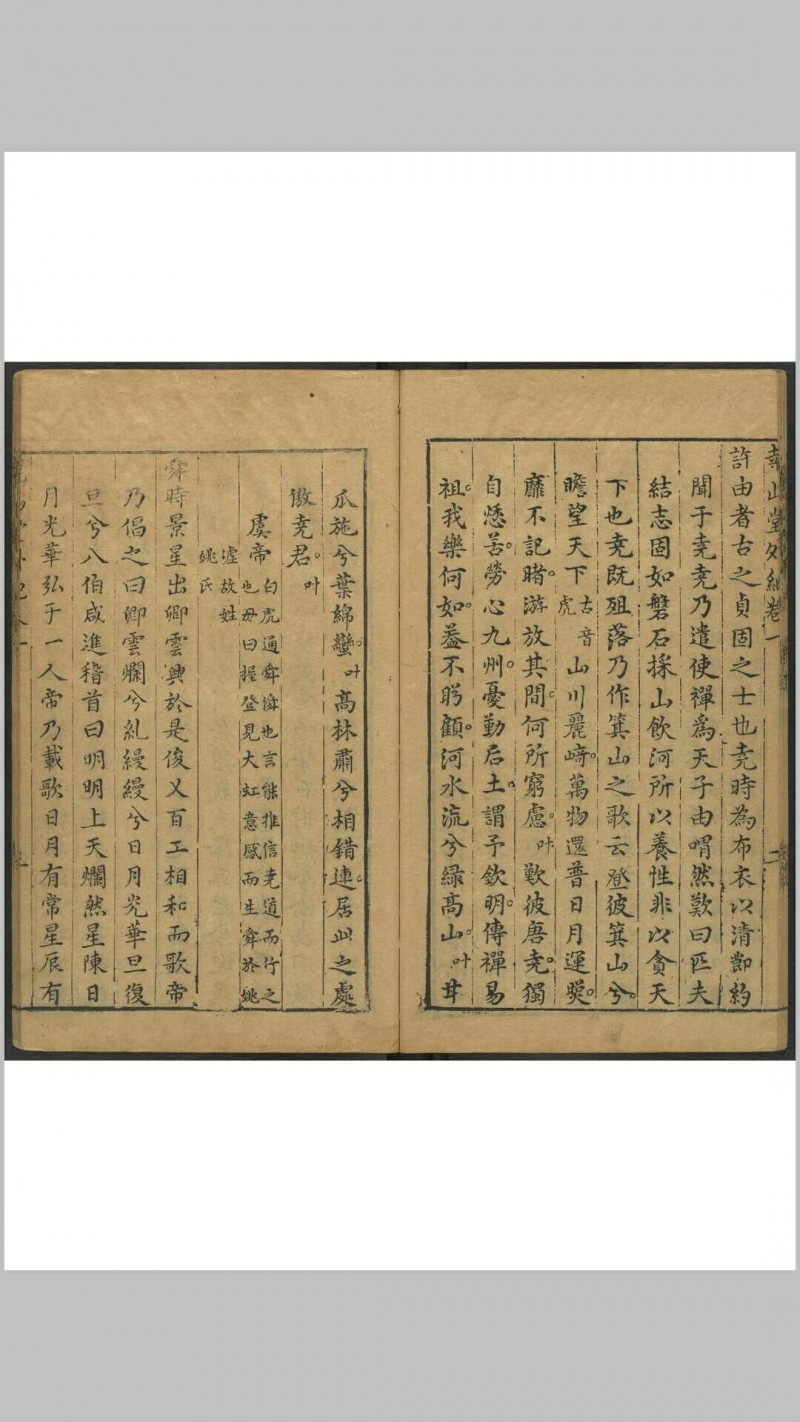 堯山堂外紀卷一
許由者古之貞固之士也堯時為布衣以清節約
聞于堯堯乃遣使禪為天子由喟然歎曰匹夫
結志固如磐石採山飲河所以養性非以貪天
下也堯既殂落乃作箕山之歌云登彼箕山兮
瞻望天下古音虎山川麗崎萬物還普日月運照
靡不記睹游放其間何所窮慮叶歎彼唐堯獨
自愁苦勞心九州憂勤后土謂予欽明傳禪易
祖我樂何如葢不盻顧河水流兮綠高山叶甘
瓜施兮葉綿蠻叶高林肅兮相錯連居此之處
傲堯君叶
虞帝白虎通舜僢也言能推信堯道而行之
也母曰握登見大虹意感而生舜於姚
墟故姓
姚氏
舜時景星出卿雲興於是俊乂百工相和而歌帝
乃倡之曰卿雲爛兮糺縵縵兮日月光華旦復
旦兮八伯咸進稽首曰明明上天爛然星陳日
月光華弘于一人帝乃載歌曰月有常星辰有